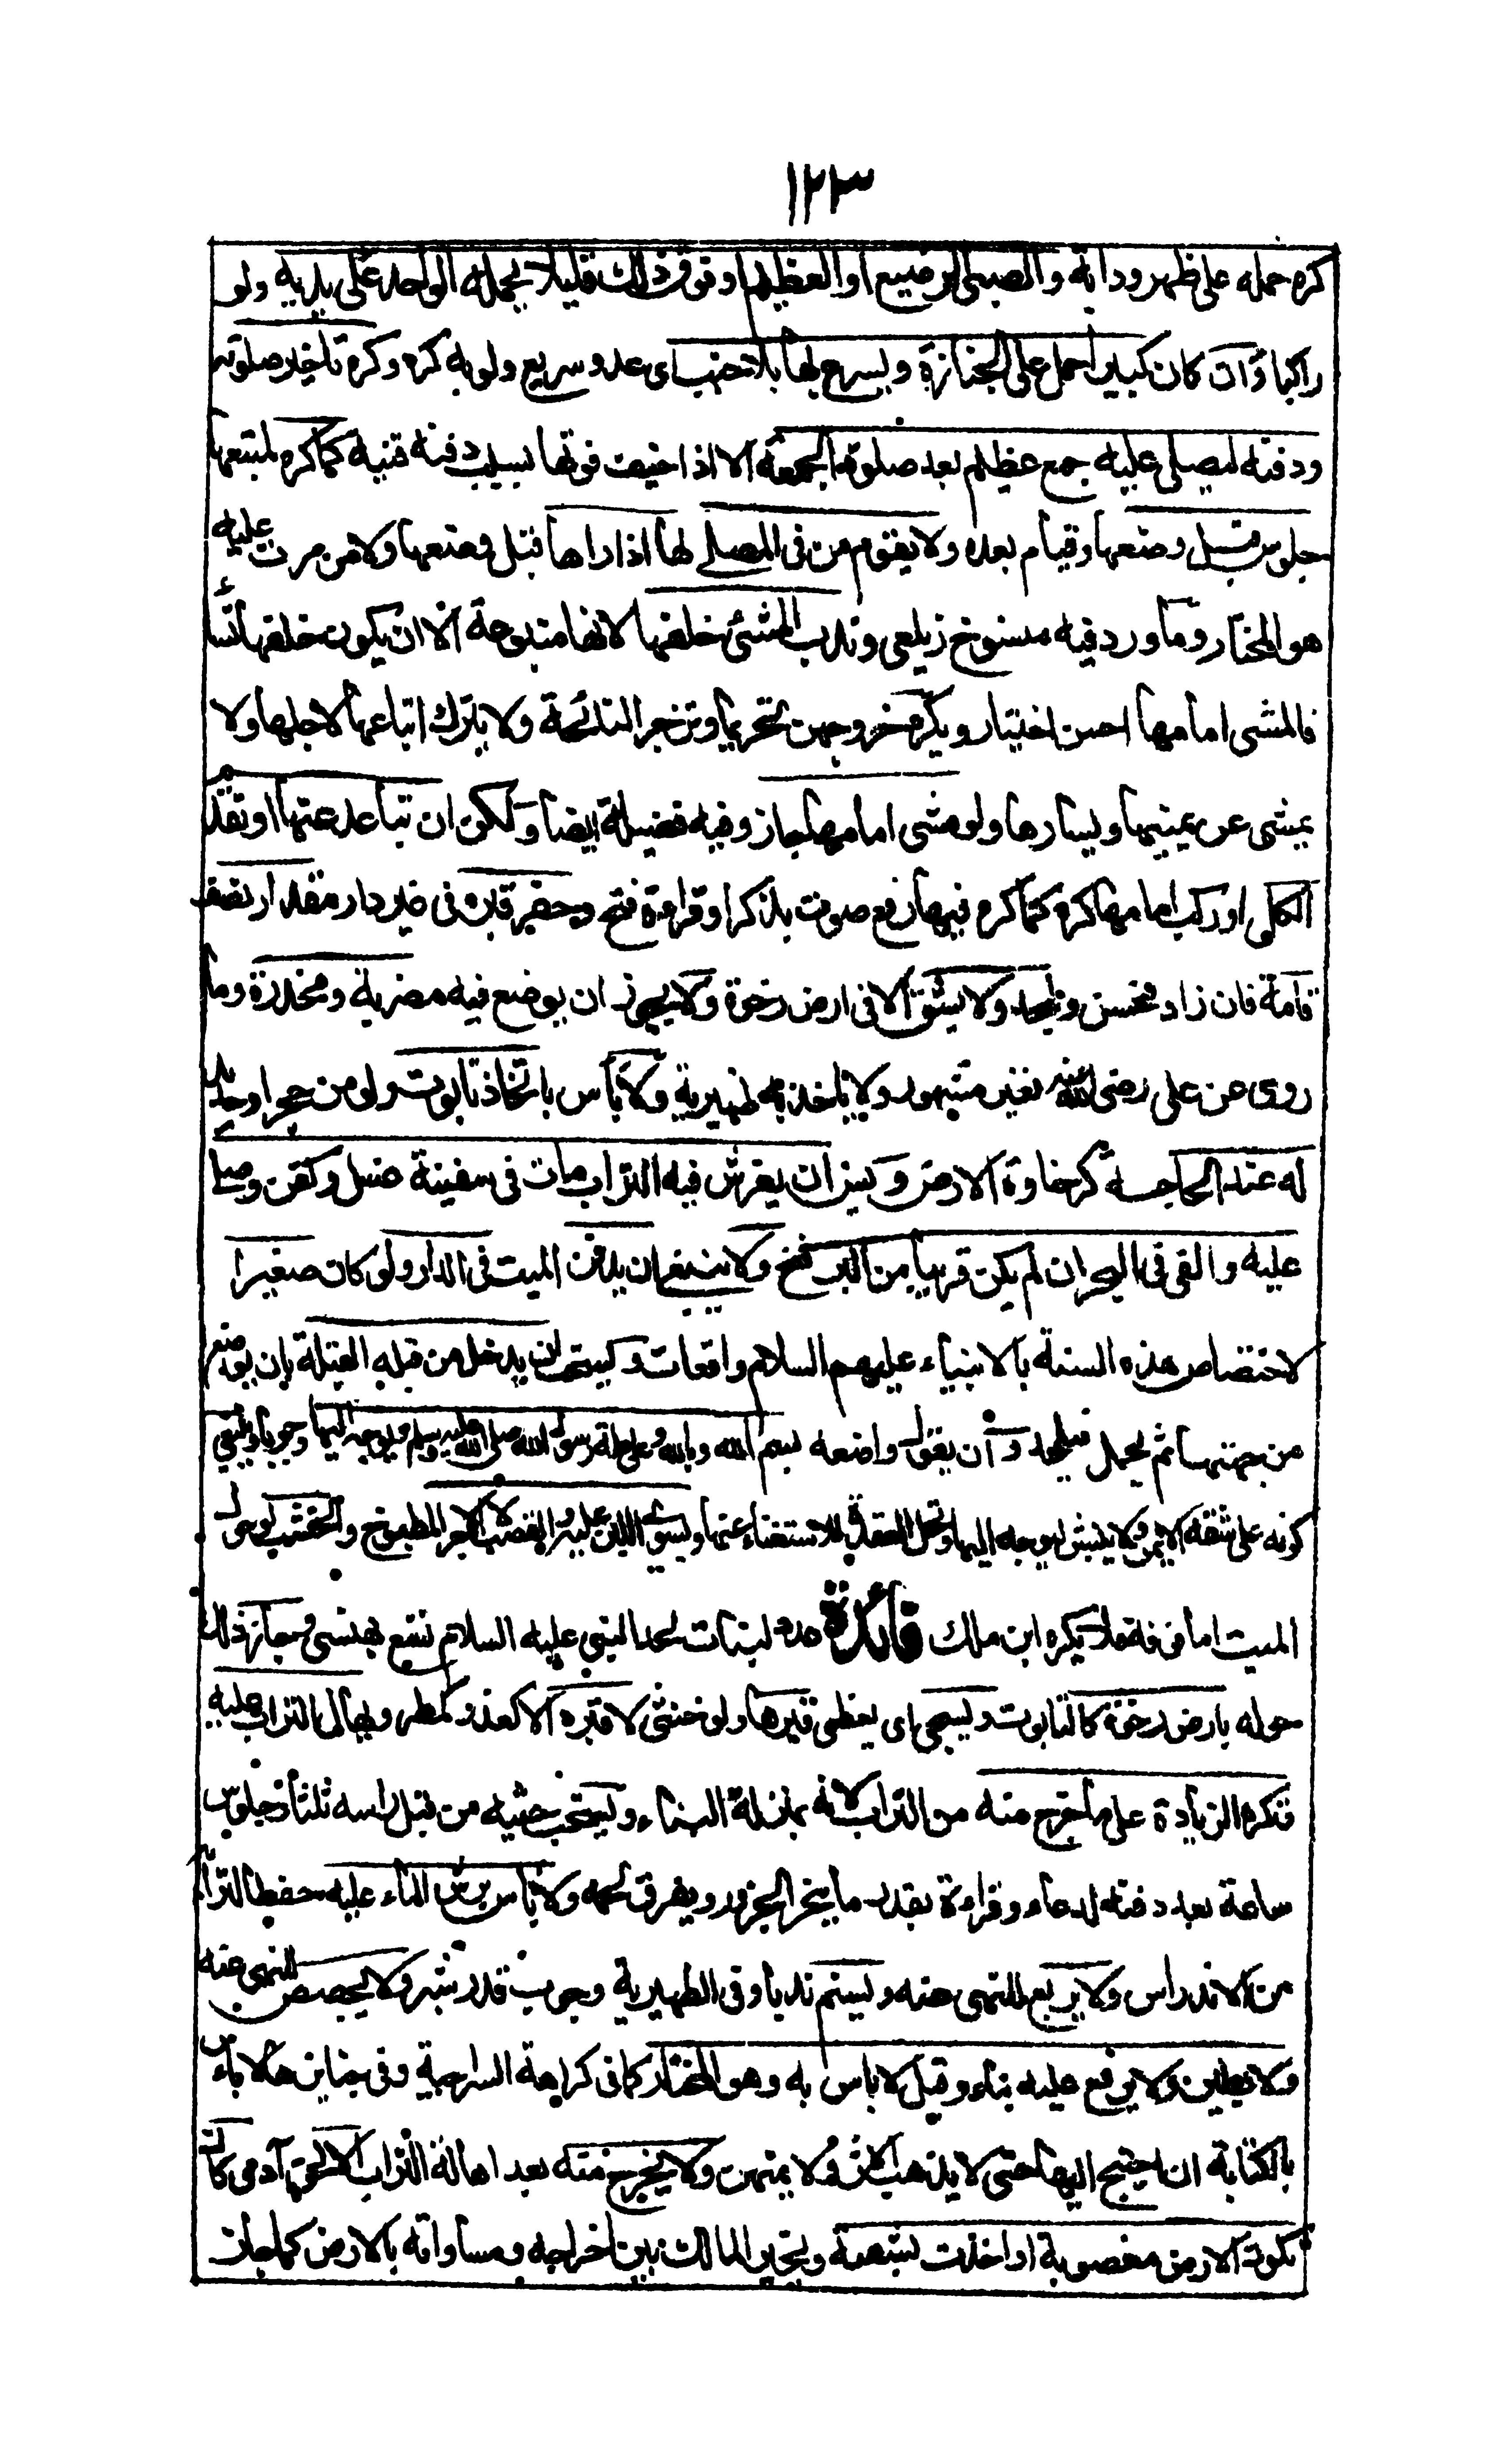 ١٢٣
كره حمله على ظهر ودابة والصبى الرضيع او الفطيم او فوق ذلك قليلا يحمله الواحد على يديه ولو
راكبا وان كان كبيرا حمل على الجنازة ويسرع بها بلا خبب اى عدو سريع ولو به كره وكره تاخير صلوته
ودفنه ليصلى عليه جمع عظيم بعد صلوة الجمعة الا اذا خيف فوتها بسبب دفنه قنيه كما كره لمتبعها
جلوس قبل وضعها وقيام بعده ولا يقوم من فى المصلى لها اذا راها قبل وضعها ولا من مرت عليه
هو المختار وما ورد فيه منسوخ زيلعى وندب المشى خلفها لانها متبوعة الا ان يكون خلفها نساء
فالمشى امامها احسن اختيار ويكره خروجهن تحريما وتزجر النائحة ولا يترك اتباعها لاجلها ولا
يمشى عن يمينها ويسارها ولو مشى امامها جاز وفيه فضيلة ايضا ولكن ان تباعد عنها او تقدم
الكل او ركب امامها كره كما كره فيها رفع صوت بذكر او قراءة فتح وحفر قبره فى غير دار مقدار نصف
قامة فان زاد فحسن ويلحد ولا يشق الا فى ارض رخوة ولا يجوز ان يوضع فيه مضربة ومخدة وما
روى عن على رضى الله عنه فغير مشهور ولا يأخذ به ظهيرية ولا بأس باتخاذ تابوت ولو من حجر او حديد
له عند الحاجة كرخاوة الارض ويسن ان يفرش فيه التراب مات فى سفينة غسل وكفن وصلى
عليه والقى فى البحر ان لم يكن قريبا من البر فتح ولا ينبغى ان يدفن الميت فى الدار ولو كان صغيرا
لاختصاص هذه السنة بالانبياء عليهم السلام واقعات ويستحب ان يدخل من قبل القبلة بان يوضع
من جهتها ثم يحمل فيلحد وان يقول واضعه بسم الله وبالله وعلى ملة رسول الله صلى الله عليه وسلم ويوجه اليها وجوبا وينبغى
كونه على شقه الايمن ولا ينبش ليوجه اليها وتحل العقدة للاستغناء عنها ويسوى اللبن عليه والقصب لا الاجر المطبوخ والخشب لو حول
الميت اما فوقه فلا يكره ابن ملك فائدة عدد لبنات لحد النبى عليه السلام تسع بهنسى وجاز ذلك
حوله بارض رخوة كالتابوت ويسجى اى يغطى قبرها ولو خنثى لا قبره الا لعذر كمطر ويهال التراب عليه
وتكره الزيادة على ما خرج منه من التراب لانه بمنزلة البناء ويستحب حثيه من قبل راسه ثلثا وجلوس
ساعة بعد دفنه لدعاء وقراءة بقدر ما ينحر الجزور ويفرق لحمه ولا بأس برش الماء عليه حفظا لترابه
من الاندراس ولا يربع للنهى عنه ويسنم ندبا وفى الظهيرية وجوبا قدر شبر ولا يجصص للنهى عنه
ولا يطين ولا يرفع عليه بناء وقيل لا باس به وهو المختار كما فى كراهة السراجية وفى جنايزها لا باس
بالكتابة ان احتيج اليها حتى لا يذهب الاثر ولا يمتهن ولا يخرج منه بعد اهالة التراب الا لحق آدمى كان
تكون الارض مغصوبة او اخذت بشفعة ويخير المالك بين اخراجه ومساواته بالارض كما جاز